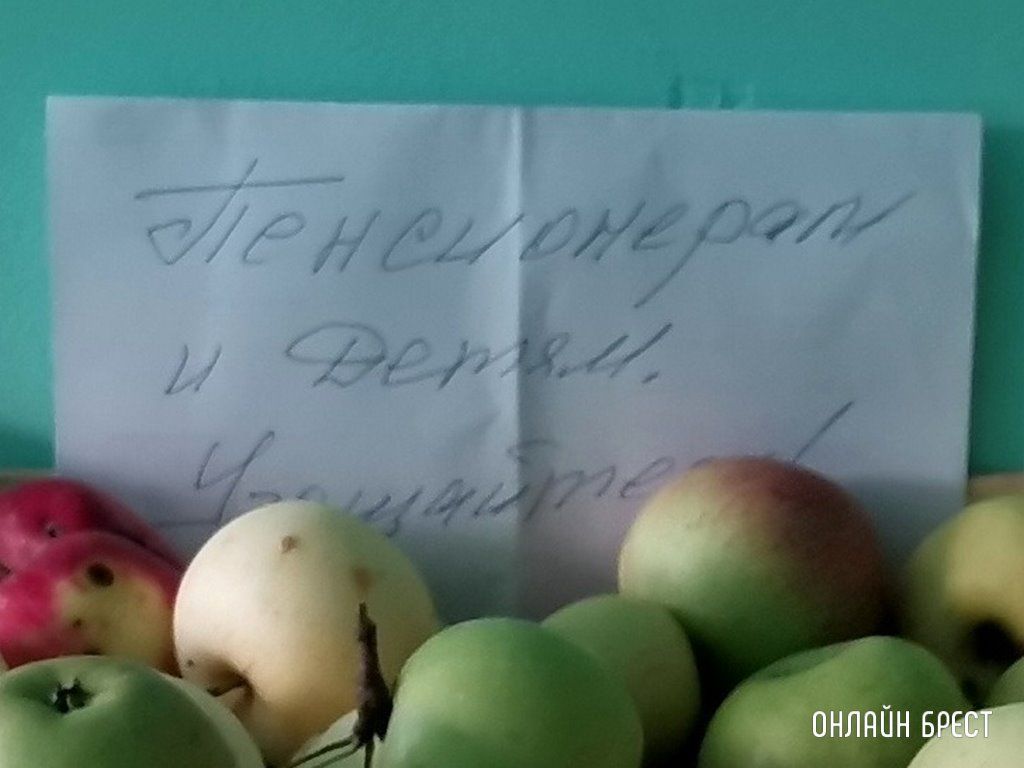 Пенсионерам
и Детям.
Угощайтесь!
ОНЛАЙН БРЕСТ